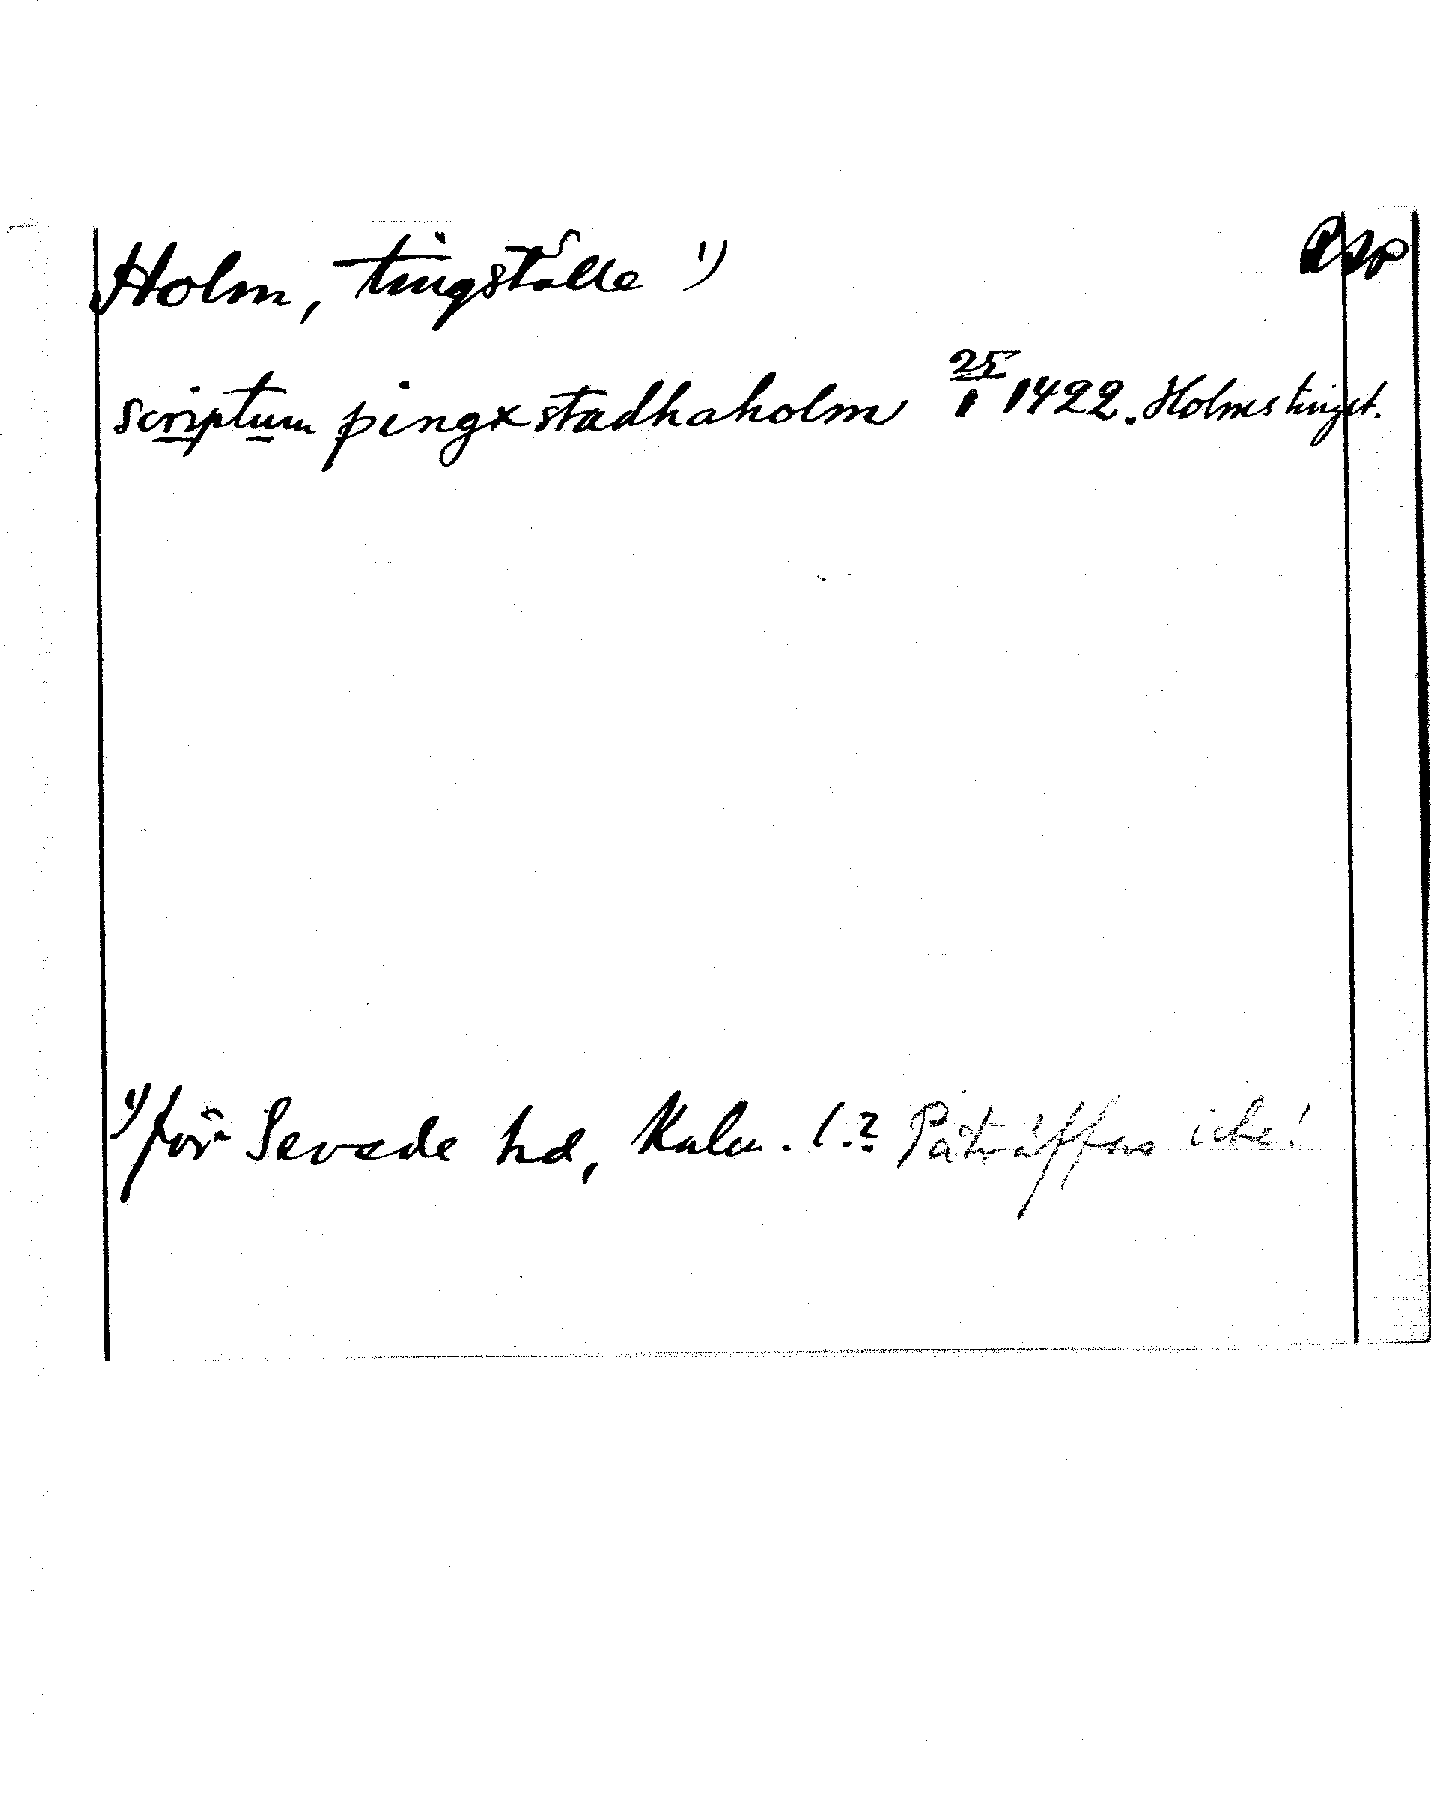 Holm, tingställe ¹) RAp
scriptum þingxstædhaholm 25/1 1422. Holmstinget.
¹) för Sevede hd, Kalm. l.? Påträffas icke!